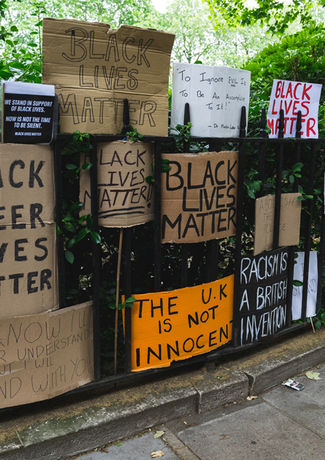 WE STAND IN SUPPORT
OF BLACK LIVES.
NOW IS NOT THE TIME
TO BE SILENT.
BLACK LIVES MATTER
BLACK
LIVES
MATTER
To Ignore EVIL IS
To Be An Accomplice
To It!"
BLACK
LIVES
MATTER
ACK
EER
VES
TTER
LACK
IVES
MATTER!
BLACK
LIVES
MATTER
THE U.K
IS NOT
INNOCENT
RACISM IS
A BRITISH
INVENTION
KNOW I'LL
R UNDERSTAND
BUT I WILL
AND WITH YOU